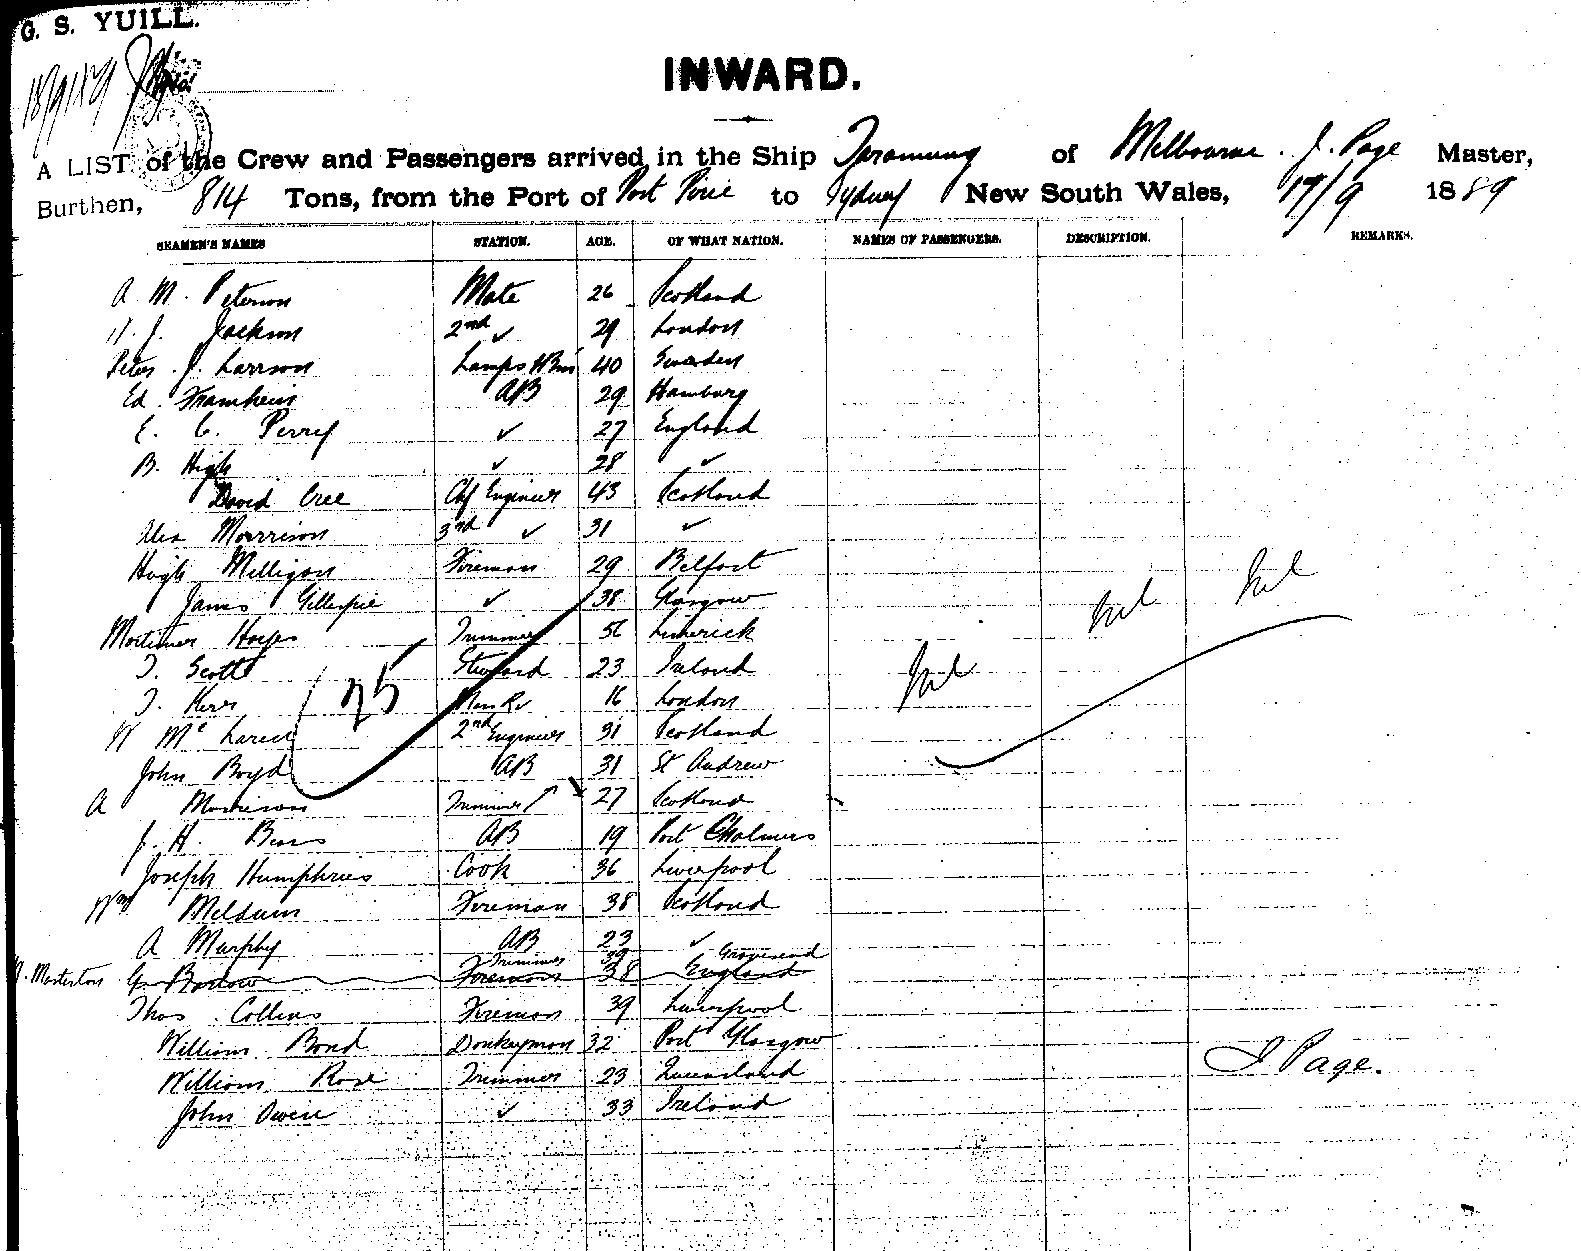 G. S. YUILL.
18/9/89
INWARD.
A LIST of the Crew and Passengers arrived in the Ship Taramung of Melbourne. J. Page Master,
Burthen, 814 Tons, from the Port of Port Pirie to Sydney New South Wales, 17/9 1889
SEAMEN'S NAMES STATION. AGE. OF WHAT NATION. NAMES OF PASSENGERS. DESCRIPTION. REMARKS.
A M. Peterson Mate 26 Scotland
H. J. Jackson 2nd ✓ 29 London
Peter J. Larrson Lamps 40 Sweden
Ed. Framhein AB 29 Hamburg
E. C. Perry ✓ 27 England
B. High ✓ 28 ✓
David Cree Chf Engineer 43 Scotland
Alex Morrrison 3rd ✓ 31 ✓
Hugh Milligan Fireman 29 Belfast
James Gillespie ✓ 38 Glasgow
Mortimer Hayes Trimmer 56 Limerick
T. Scott Steward 23 Ireland
T. Kerr 16 London
W Mc Laren 2nd Engineer 31 Scotland
John Boyd AB 31 St Andrew
A Morrison Trimmer 27 Scotland
J. H. AB 19 Port Chalmers
Joseph Humphries Cook 36 Liverpool
Wm Meldrum Fireman 38 Scotland
A Murphy AB 23 ✓
Trimmer 39 Gravesend
G. Barlow Fireman 38 England
Thos. Collins Fireman 39 Liverpool
William Bond Donkeyman 32 Port Glasgow
William Rose Trimmer 23 Queensland
John Owen ✓ 33 Ireland
25
Nil
Nil
Nil
J Page.